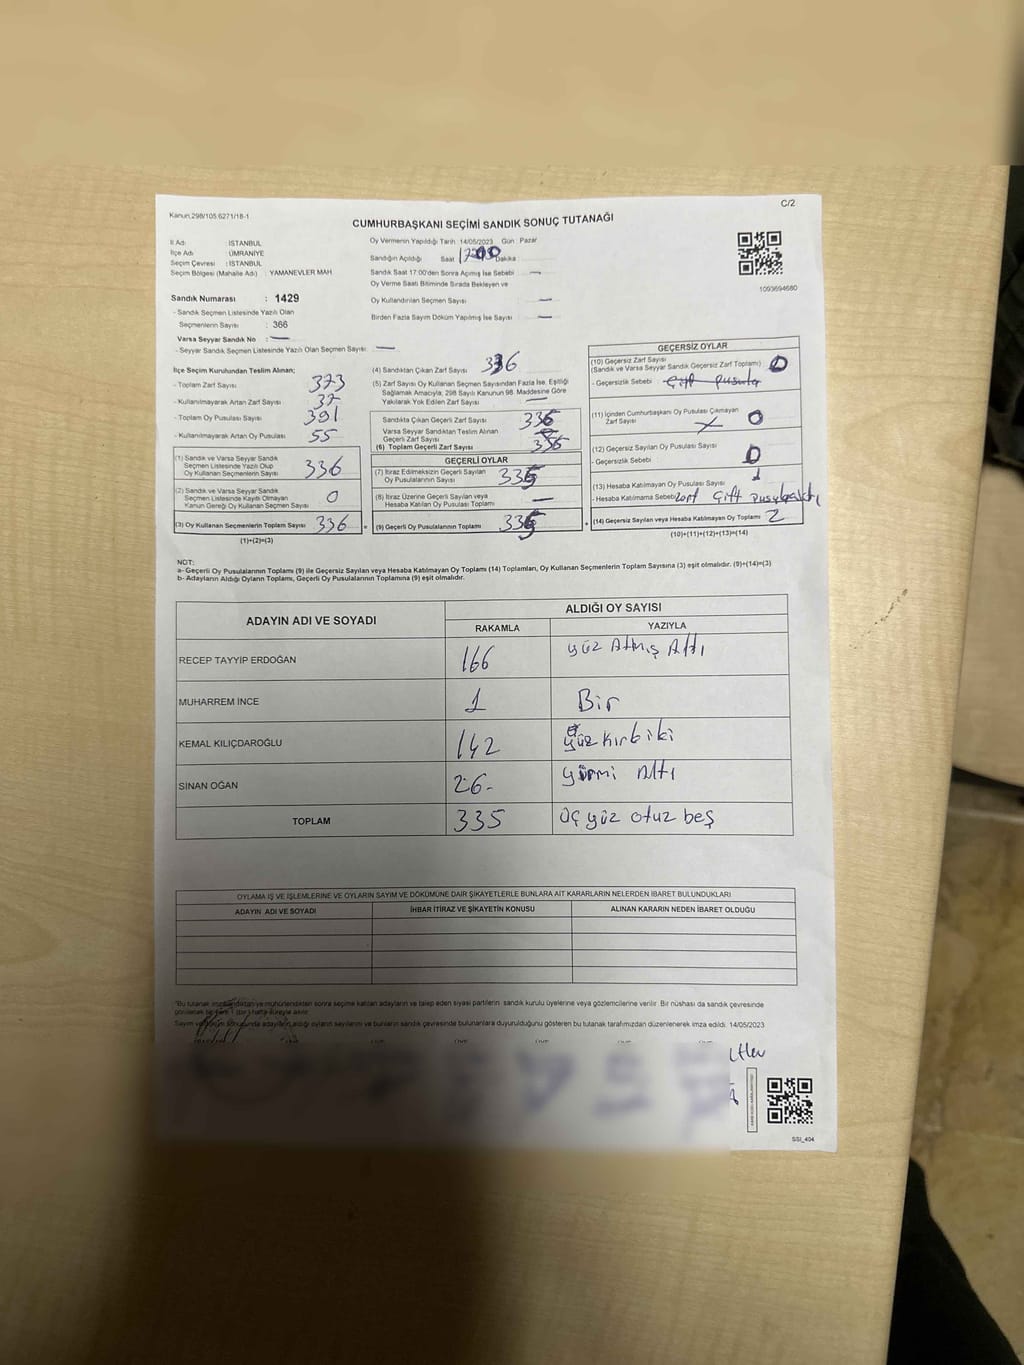 C/2
Kanun,298/105 6271/18-1
CUMHURBAŞKANI SEÇİMİ SANDIK SONUÇ TUTANAĞI
İl Adı : İSTANBUL
İlçe Adı : ÜMRANİYE
Seçim Çevresi : İSTANBUL
Seçim Bölgesi (Mahalle Adı) : YAMANEVLER MAH.
Sandık Numarası : 1429
- Sandık Seçmen Listesinde Yazılı Olan
Seçmenlerin Sayısı : 366
Varsa Seyyar Sandık No : —
- Seyyar Sandık Seçmen Listesinde Yazılı Olan Seçmen Sayısı : —
Oy Vermenin Yapıldığı Tarih : 14/05/2023 Gün : Pazar
Sandığın Açıldığı Saat Dakika
Sandık Saat 17:00'den Sonra Açmış İse Sebebi —
Oy Verme Saati Bitiminde Sırada Bekleyen ve
Oy Kullandırılan Seçmen Sayısı —
Birden Fazla Sayım Döküm Yapılmış İse Sayısı —
1093694680
İlçe Seçim Kurulundan Teslim Alınan;
- Toplam Zarf Sayısı 373
- Kullanılmayarak Artan Zarf Sayısı 37
- Toplam Oy Pusulası Sayısı 391
- Kullanılmayarak Artan Oy Pusulası 55
(1) Sandık ve Varsa Seyyar Sandık
Seçmen Listesinde Yazılı Olup
Oy Kullanan Seçmenlerin Sayısı 336
(2) Sandık ve Varsa Seyyar Sandık
Seçmen Listesinde Kayıtlı Olmayan
Kanun Gereği Oy Kullanan Seçmen Sayısı 0
(3) Oy Kullanan Seçmenlerin Toplam Sayısı 336
(1)+(2)=(3)
(4) Sandıktan Çıkan Zarf Sayısı 336
(5) Zarf Sayısı Oy Kullanan Seçmen Sayısından Fazla İse, Eşitliği
Sağlamak Amacıyla, 298 Sayılı Kanunun 98. Maddesine Göre
Yakılarak Yok Edilen Zarf Sayısı —
Sandıkta Çıkan Geçerli Zarf Sayısı 336
Varsa Seyyar Sandıktan Teslim Alınan
Geçerli Zarf Sayısı
(6) Toplam Geçerli Zarf Sayısı 336
GEÇERLİ OYLAR
(7) İtiraz Edilmeksizin Geçerli Sayılan
Oy Pusulalarının Sayısı 335
(8) İtiraz Üzerine Geçerli Sayılan veya
Hesaba Katılan Oy Pusulası Toplamı —
(9) Geçerli Oy Pusulalarının Toplamı 335
GEÇERSİZ OYLAR
(10) Geçersiz Zarf Sayısı
(Sandık ve Varsa Seyyar Sandık Geçersiz Zarf Toplamı) 0
- Geçersizlik Sebebi Çift pusula
(11) İçinden Cumhurbaşkanı Oy Pusulası Çıkmayan
Zarf Sayısı 0
(12) Geçersiz Sayılan Oy Pusulası Sayısı 0
- Geçersizlik Sebebi
(13) Hesaba Katılmayan Oy Pusulası Sayısı 1
- Hesaba Katılmama Sebebi Çift
(14) Geçersiz Sayılan veya Hesaba Katılmayan Oy Toplamı 2
(10)+(11)+(12)+(13)=(14)
NOT:
a- Geçerli Oy Pusulalarının Toplamı (9) ile Geçersiz Sayılan veya Hesaba Katılmayan Oy Toplamı (14) Toplamları, Oy Kullanan Seçmenlerin Toplam Sayısına (3) eşit olmalıdır. (9)+(14)=(3)
b- Adayların Aldığı Oyların Toplamı, Geçerli Oy Pusulalarının Toplamına (9) eşit olmalıdır.
ADAYIN ADI VE SOYADI ALDIĞI OY SAYISI
RAKAMLA YAZIYLA
RECEP TAYYİP ERDOĞAN 166 yüz Atmış Altı
MUHARREM İNCE 1 Bir
KEMAL KILIÇDAROĞLU 142 yüz kırk iki
SİNAN OĞAN 26- yirmi Altı
TOPLAM 335 üç yüz otuz beş
OYLAMA İŞ VE İŞLEMLERİNE VE OYLARIN SAYIM VE DÖKÜMÜNE DAİR ŞİKAYETLERLE BUNLARA AİT KARARLARIN NELERDEN İBARET BULUNDUKLARI
ADAYIN ADI VE SOYADI İHBAR İTİRAZ VE ŞİKAYETİN KONUSU ALINAN KARARIN NEDEN İBARET OLDUĞU
"Bu tutanak imzalandıktan ve mühürlendikten sonra seçime katılan adayların ve talep eden siyasi partilerin sandık kurulu üyelerine veya gözlemcilerine verilir. Bir nüshası da sandık çevresinde
görülecek bir yere 1 (bir) hafta süreyle asılır.
Sayım ve döküm sonucunda adayların aldığı oyların sayılarını ve bunların sandık çevresinde bulunanlara duyurulduğunu gösteren bu tutanak tarafımızdan düzenlenerek imza edildi. 14/05/2023
SSI_404